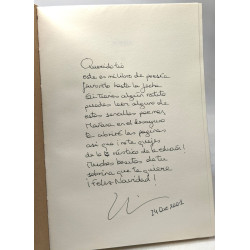 Querido tío
este es mi libro de poesía
favorito hasta la fecha
Si tienes algún ratito
puedes leer alguno de
estos sencillos poemas,
Mañana en el desayuno
te abriré las páginas
así que ¡no te quejes
de lo rústico de la edición!
Muchos besitos de tu
sobrina que te quiere
¡Feliz Navidad!
24 Dic 2002